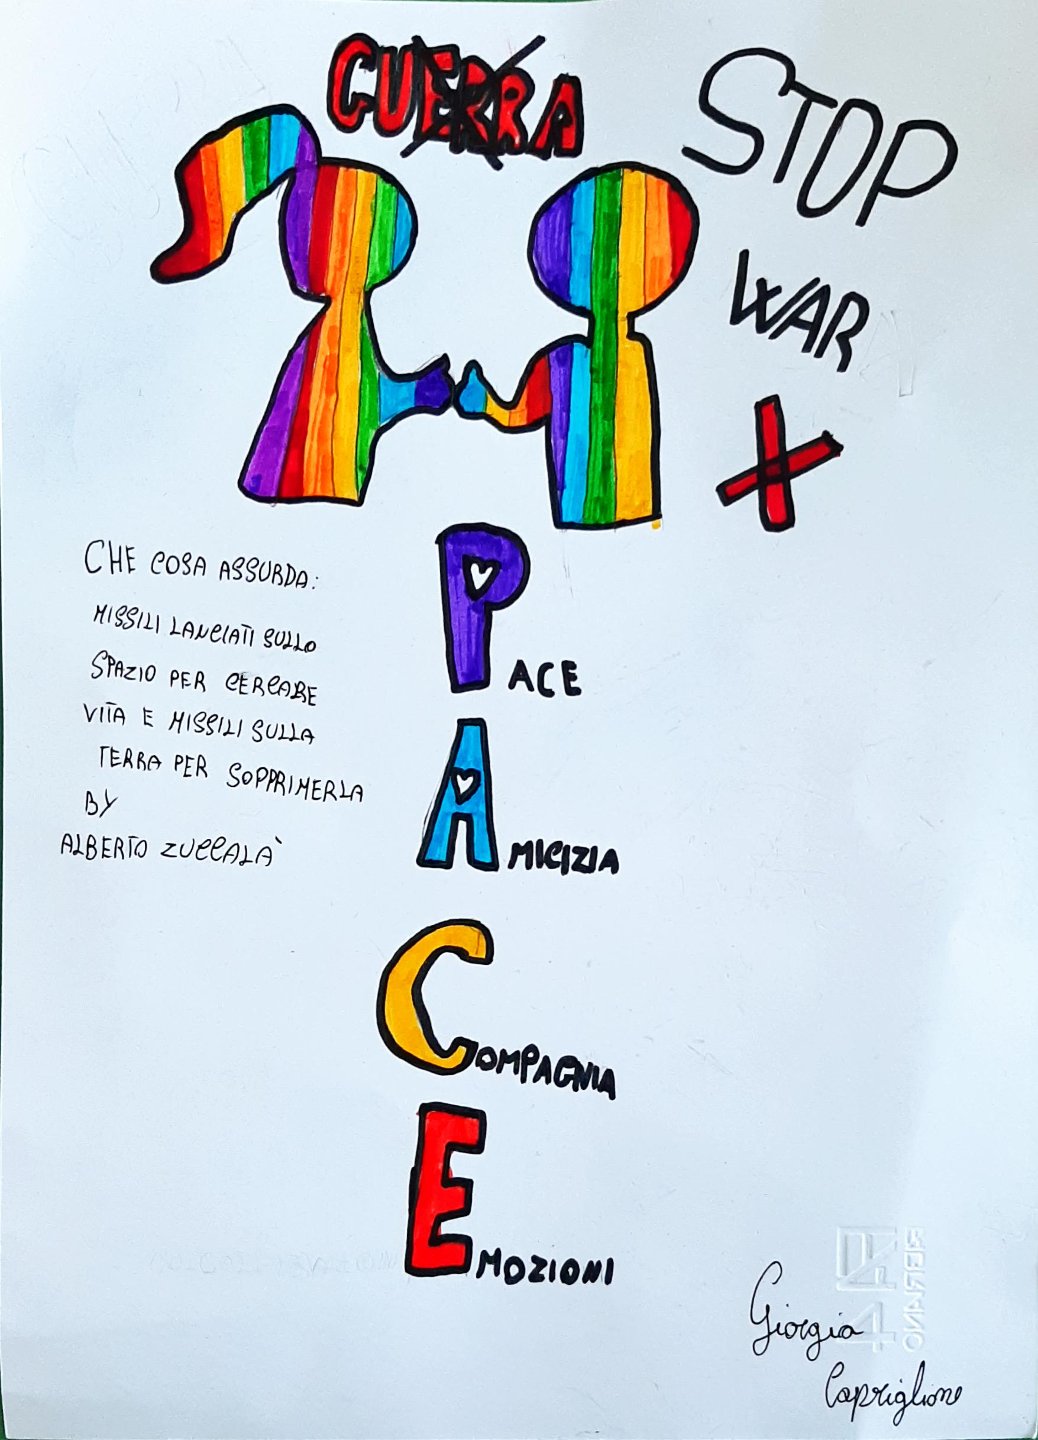 GUERRA
STOP
WAR
CHE COSA ASSURDA:
MISSILI LANCIATI SULLO
SPAZIO PER CERCARE
VITA E MISSILI SULLA
TERRA PER SOPPRIMERLA
BY
ALBERTO ZUCCALA'
PACE
AMICIZIA
COMPAGNIA
EMOZIONI
Giorgia
Capriglione
F4
FABRIANO